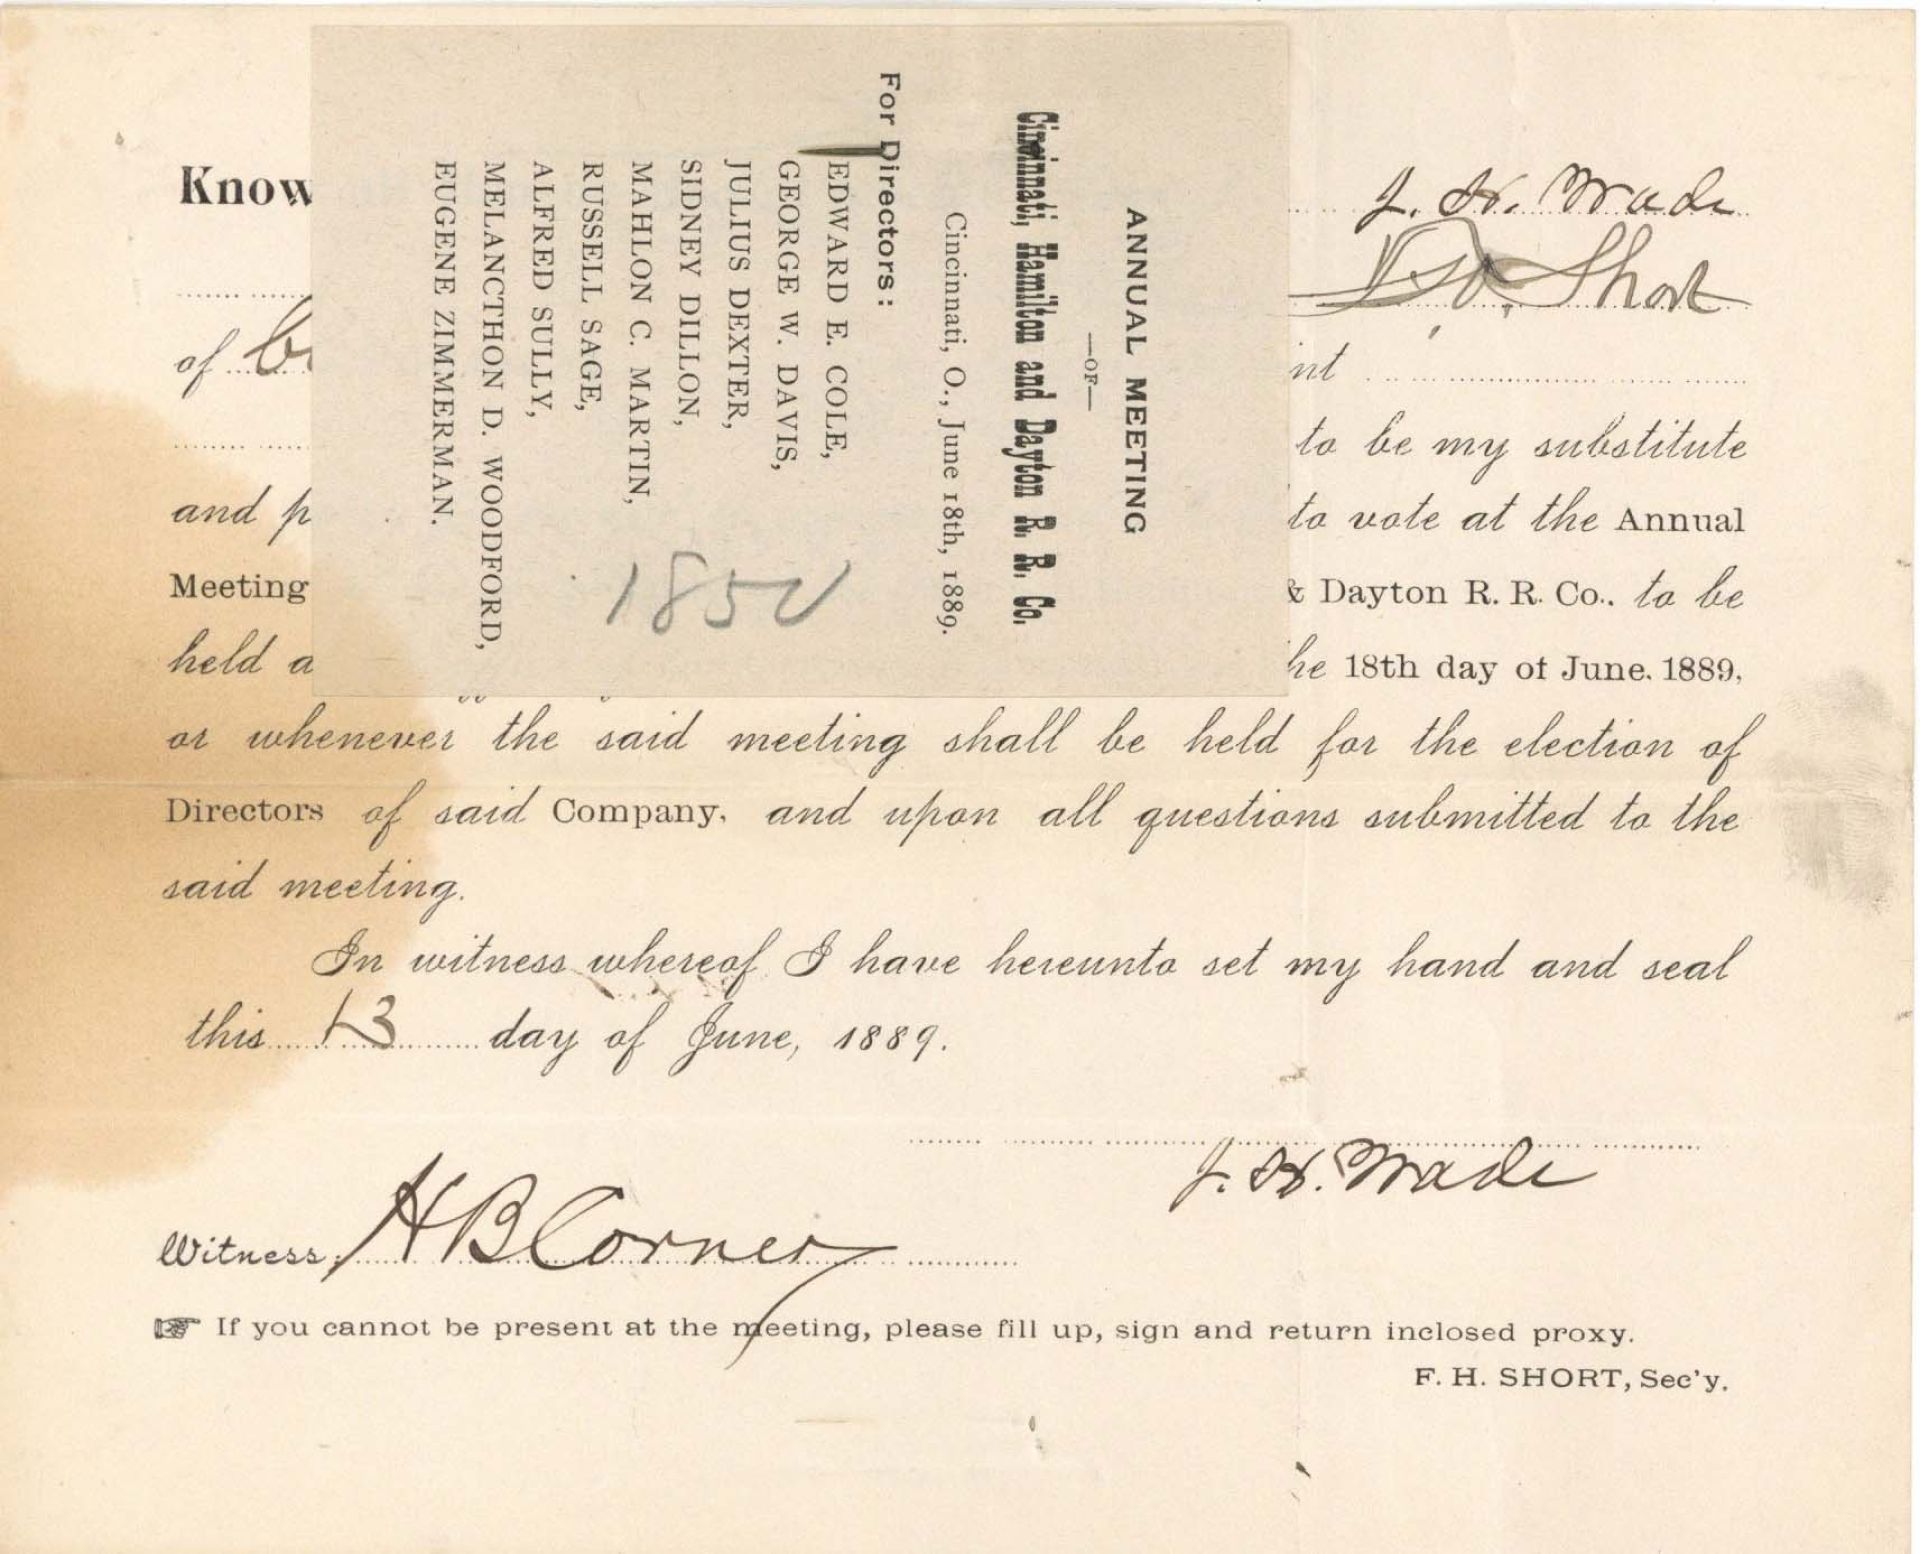 Know
J. H. Wade
Short
of
nt
to be my substitute
and p
to vote at the Annual
Meeting
& Dayton R. R. Co., to be
held a
he 18th day of June, 1889,
or whenever the said meeting shall be held for the election of
Directors of said Company, and upon all questions submitted to the
said meeting.
In witness whereof I have hereunto set my hand and seal
this 13 day of June, 1889.
J. H. Wade
Witness: H B Corner
☞ If you cannot be present at the meeting, please fill up, sign and return inclosed proxy.
F. H. SHORT, Sec'y.
ANNUAL MEETING
—OF—
Cincinnati, Hamilton and Dayton R. R. Co.
Cincinnati, O., June 18th, 1889.
For Directors:
EDWARD E. COLE,
GEORGE W. DAVIS,
JULIUS DEXTER,
SIDNEY DILLON,
MAHLON C. MARTIN,
RUSSELL SAGE,
ALFRED SULLY,
MELANCTHON D. WOODFORD,
EUGENE ZIMMERMAN.